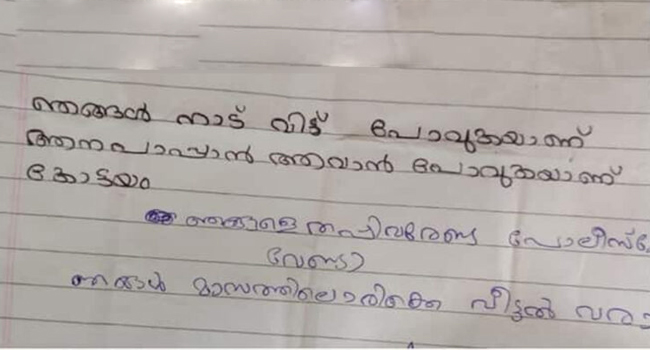 ഞങ്ങൾ നാട് വിട്ട് പോവുകയാണ്
ആനപാപ്പാൻ ആവാൻ പോവുകയാണ്
കോട്ടയം
ഞങ്ങളെ തപ്പിവരേണ്ട പോലീസ്
വേണ്ടാ
ഞങ്ങൾ മാസത്തിലൊരിക്കെ വീട്ടിൽ വരാ